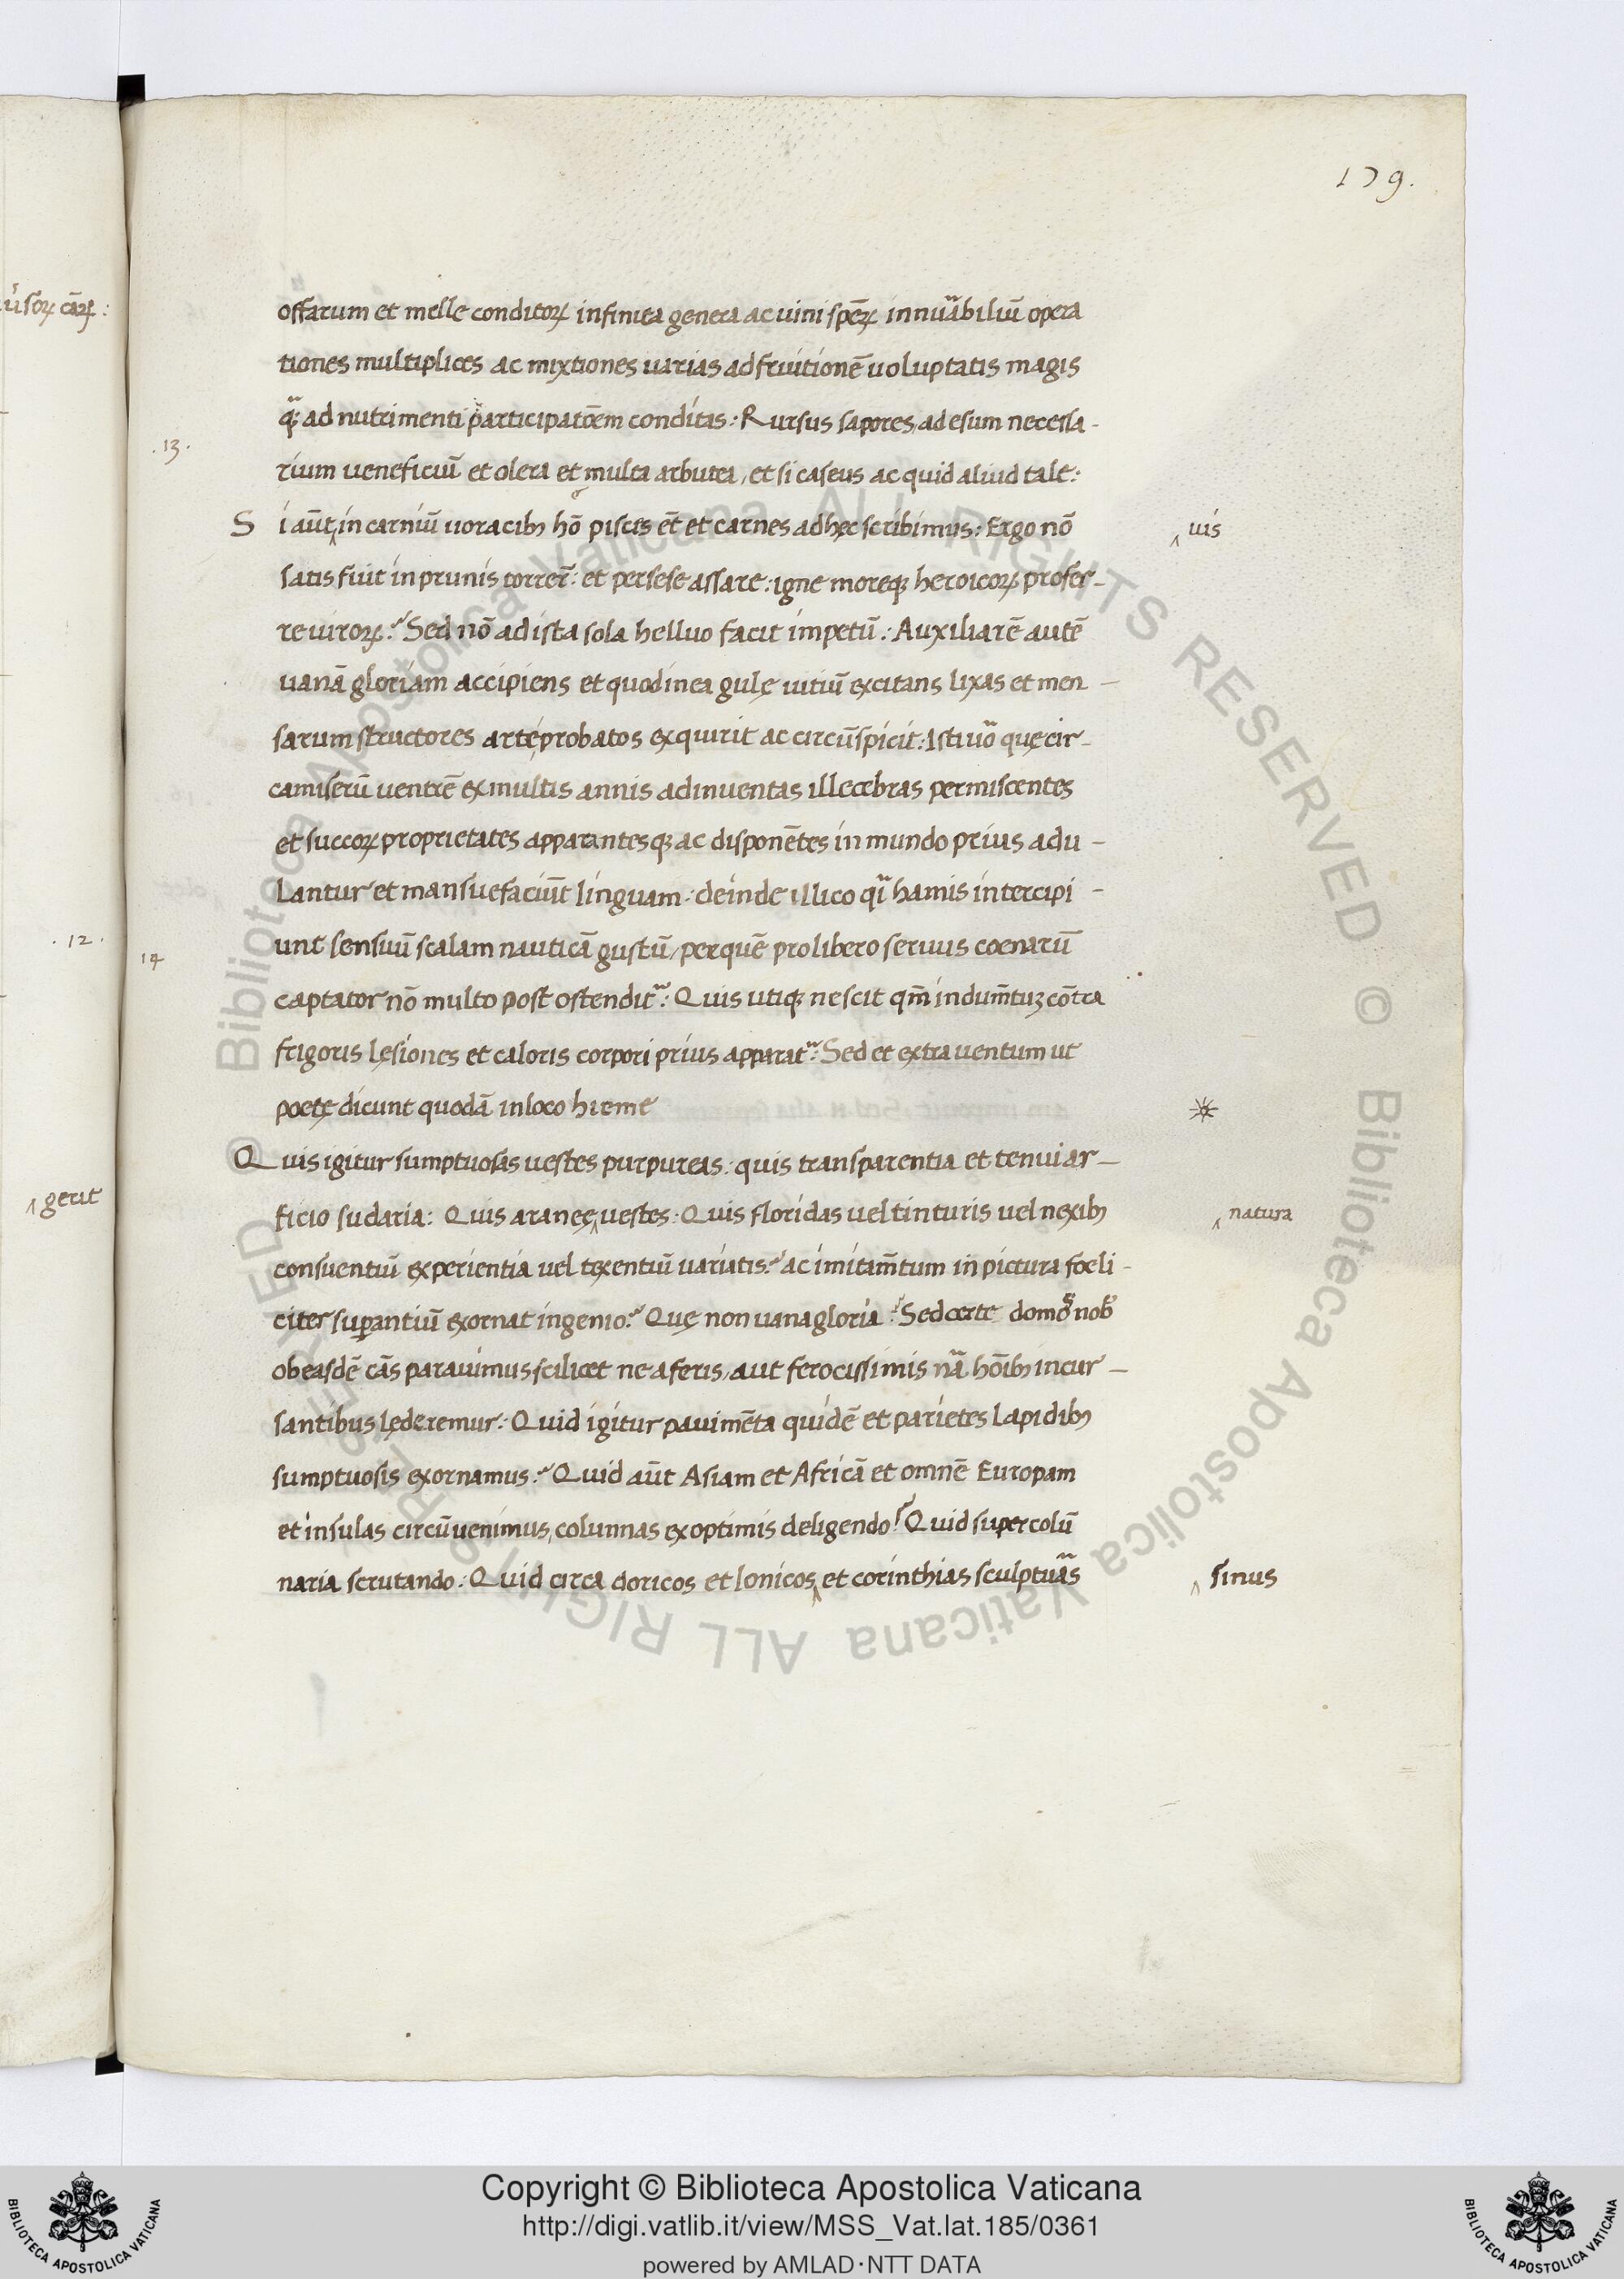 179.
offarum et melle conditoꝝ infinita genera ac uini spērꝝ innuᷓabiliū opera
tiones multiplices ac mixtiones uarias ad fruitionē uoluptatis magis
qᷓ; ad nutrimenti participatōem conditas: Rursus sapores, ad esum necessa-
.13.
rium ueneficiū et olera et multa arbutea, et si caseus ac quid aliud tale:
Si aūt‸in carniū uoracibꝫ hō pisces ēt et carnes ad hęc scribimus: Ergo nō
‸uis
satis fuit in prunis torrer̄: et per sese assare: igne moreqꝫ heroicoꝝ profer-
re uiroꝝ? Sed nō ad ista sola helluo facit impetū: Auxiliarē autē
uanā gloriam accipiens et quod in ea gulę uitiū excitans lixas et men-
sarum structores arte, probatos exquirit ac circūspicit: Isti uᷓo quę cir-
ca miserū uentrē ex multis annis adinuentas illecebras permiscentes
et succoꝝ proprietates apparantesqꝫ ac disponētes in mundo prius adu-
lantur et mansuefaciūt linguam: deinde illico qᷓi hamis intercipi-
unt sensuū scalam nauticā gustū, per quē pro libero seruus coenarū
14
captator nō multo post ostenditᷓ: Quis utiqꝫ nescit qm̄ indum̄tuꝫ cōtra
frigoris lęsiones et caloris corpori prius apparatᷓ: Sed et extra uentum ut
poetę dicunt quodā in loco hieme
*
Quis igitur sumptuosas uestes purpureas: quis transparentia et tenui ar-
ficio sudaria: Quis araneę‸uestes: Quis floridas uel tinturis uel nexibꝫ
‸natura
consuentiū experientia uel texentiū uariatis? ac imitam̄tum in pictura foeli-
citer superantiū exornat ingenio? Quę non uana gloria? Sed certe domos nob̄
ob easdē cās parauimus scilicet ne a feris, aut ferocissimis nᷓa hōibꝫ incur-
santibus lęderemur: Quid igitur pauimēta quidē et parietes lapidibꝫ
sumptuosis exornamus? Quid aūt Asiam et Africā et omnē Europam
et insulas circūuenimus, columnas ex optimis deligendo? Quid super colū
naria scrutando: Quid circa doricos et Ionicos‸et corinthias sculptuᷓas
‸sinus
uisoꝝ cāꝝ:
.12.
‸gerit
Copyright © Biblioteca Apostolica Vaticana
http://digi.vatlib.it/view/MSS_Vat.lat.185/0361
powered by AMLAD·NTT DATA
BIBLIOTECA APOSTOLICA VATICANA
BIBLIOTECA APOSTOLICA VATICANA
Biblioteca Apostolica Vaticana ALL RIGHTS RESERVED ©
Biblioteca Apostolica Vaticana ALL RIGHTS RESERVED ©